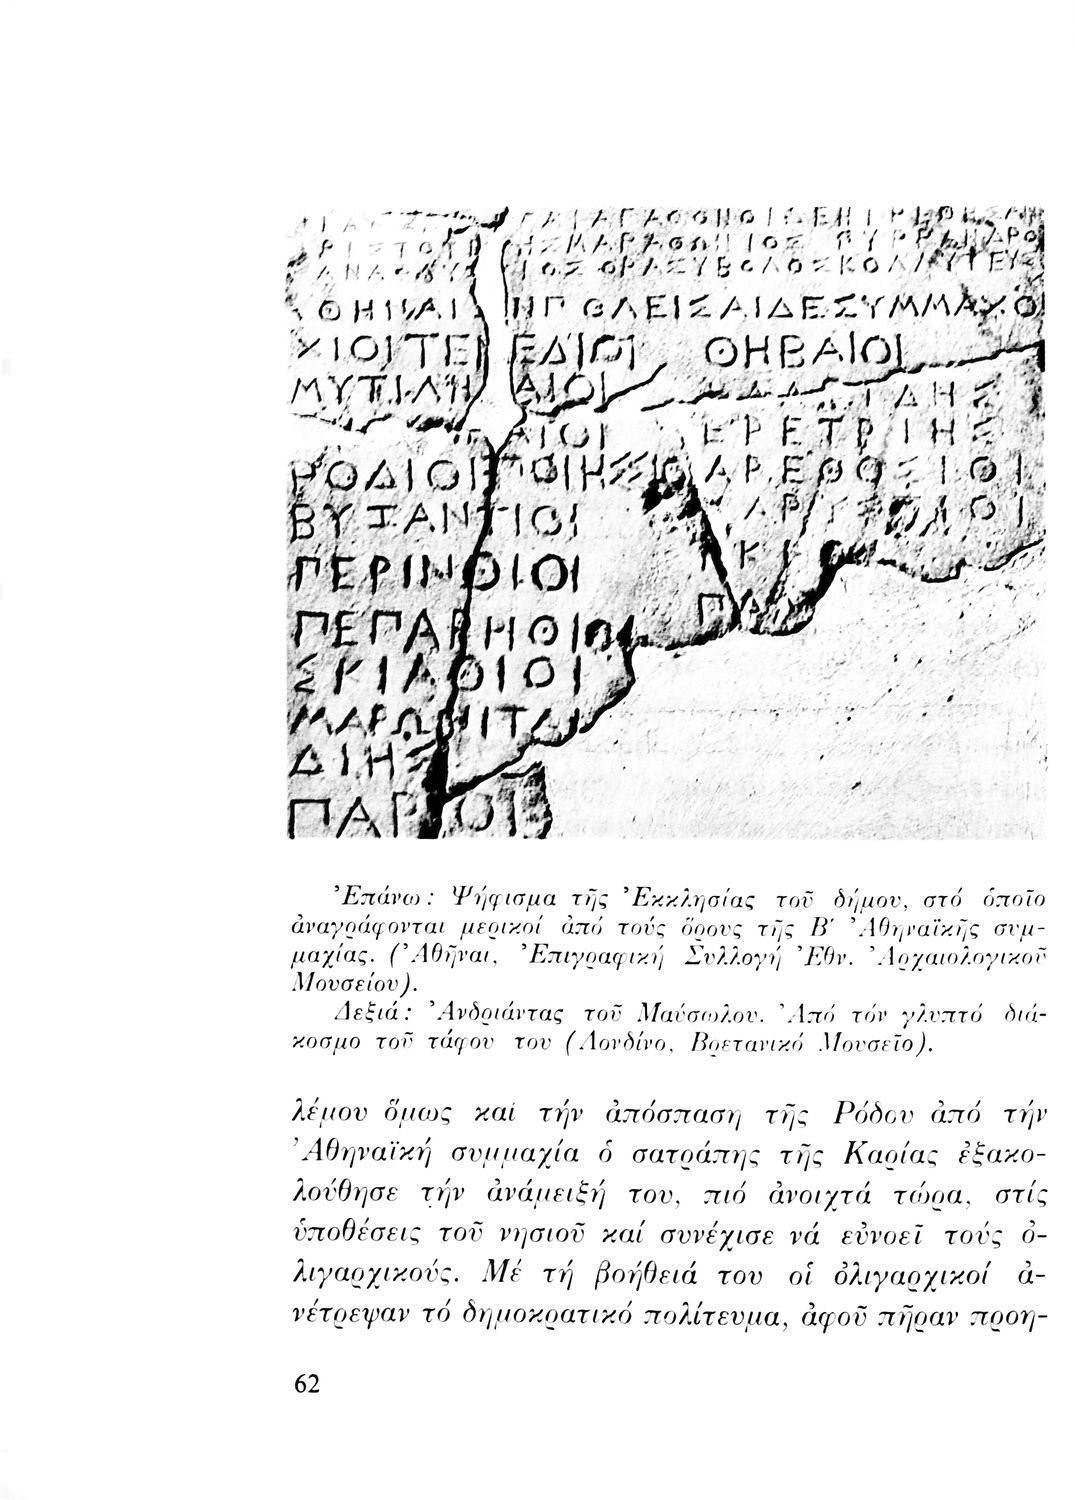 ΑΘΗΝΑΙ ΠΟΛΕΙΣΑΙΔΕΣΥΜΜΑΧΟΙ
ΧΙΟΙ ΤΕΝΕΔΙΟΙ ΘΗΒΑΙΟΙ
ΜΥΤΙΛΗ ΑΙΟΙ
ΑΙΟΙ ΕΡΕΤΡΙΗΣ
ΡΟΔΙΟΙ ΠΟΙΗΣΣΙΟ ΑΡΕΘΟΣΙΟΙ
ΒΥΖΑΝΤΙΟΙ ΚΑΡΥΣΤΙΟΙ
ΠΕΡΙΝΘΙΟΙ ΙΚΙ
ΠΕΠΑΡΗΘΙΟΙ ΠΑΛ
ΣΚΙΑΘΙΟΙ
ΜΑΡΩΝΙΤΑΙ
ΔΙΗΣ
ΠΑΡΙΟΙ
Ἐπάνω: Ψήφισμα τῆς Ἐκκλησίας τοῦ δήμου, στό ὁποῖο
ἀναγράφονται μερικοί ἀπό τούς ὅρους τῆς Β΄ Ἀθηναϊκῆς συμ-
μαχίας. (Ἀθῆναι, Ἐπιγραφική Συλλογή Ἐθν. Ἀρχαιολογικοῦ
Μουσείου).
Δεξιά: Ἀνδριάντας τοῦ Μαύσωλου. Ἀπό τόν γλυπτό διά-
κοσμο τοῦ τάφου του (Λονδίνο, Βρετανικό Μουσεῖο).
λέμου ὅμως καί τήν ἀπόσπαση τῆς Ρόδου ἀπό τήν
Ἀθηναϊκή συμμαχία ὁ σατράπης τῆς Καρίας ἐξακο-
λούθησε τήν ἀνάμειξή του, πιό ἀνοιχτά τώρα, στίς
ὑποθέσεις τοῦ νησιοῦ καί συνέχισε νά εὐνοεῖ τούς ὀ-
λιγαρχικούς. Μέ τή βοήθειά του οἱ ὀλιγαρχικοί ἀ-
νέτρεψαν τό δημοκρατικό πολίτευμα, ἀφοῦ πῆραν προη-
62